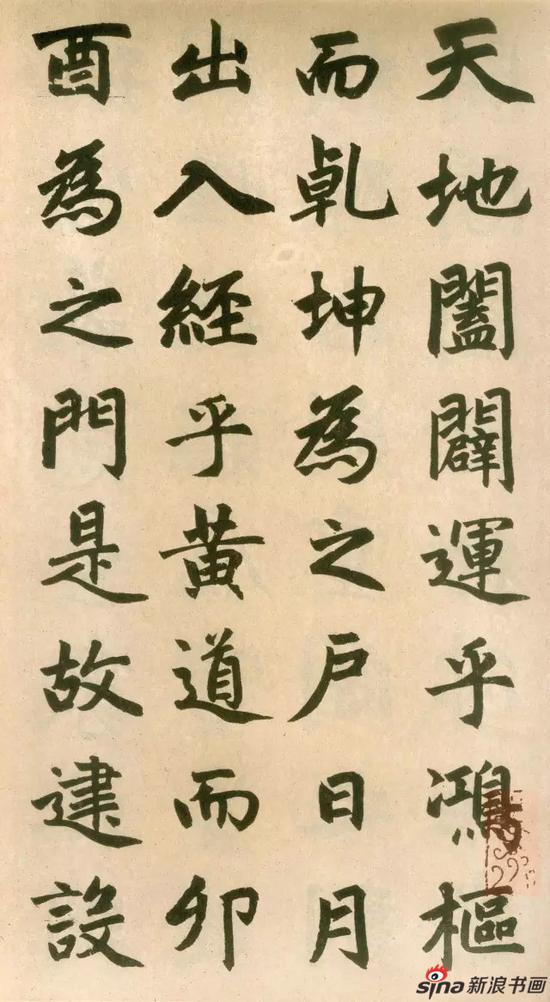 天地闔闢運乎鴻樞
而乹坤為之户日月
出入經乎黄道而卯
酉為之門是故建設
sina新浪书画